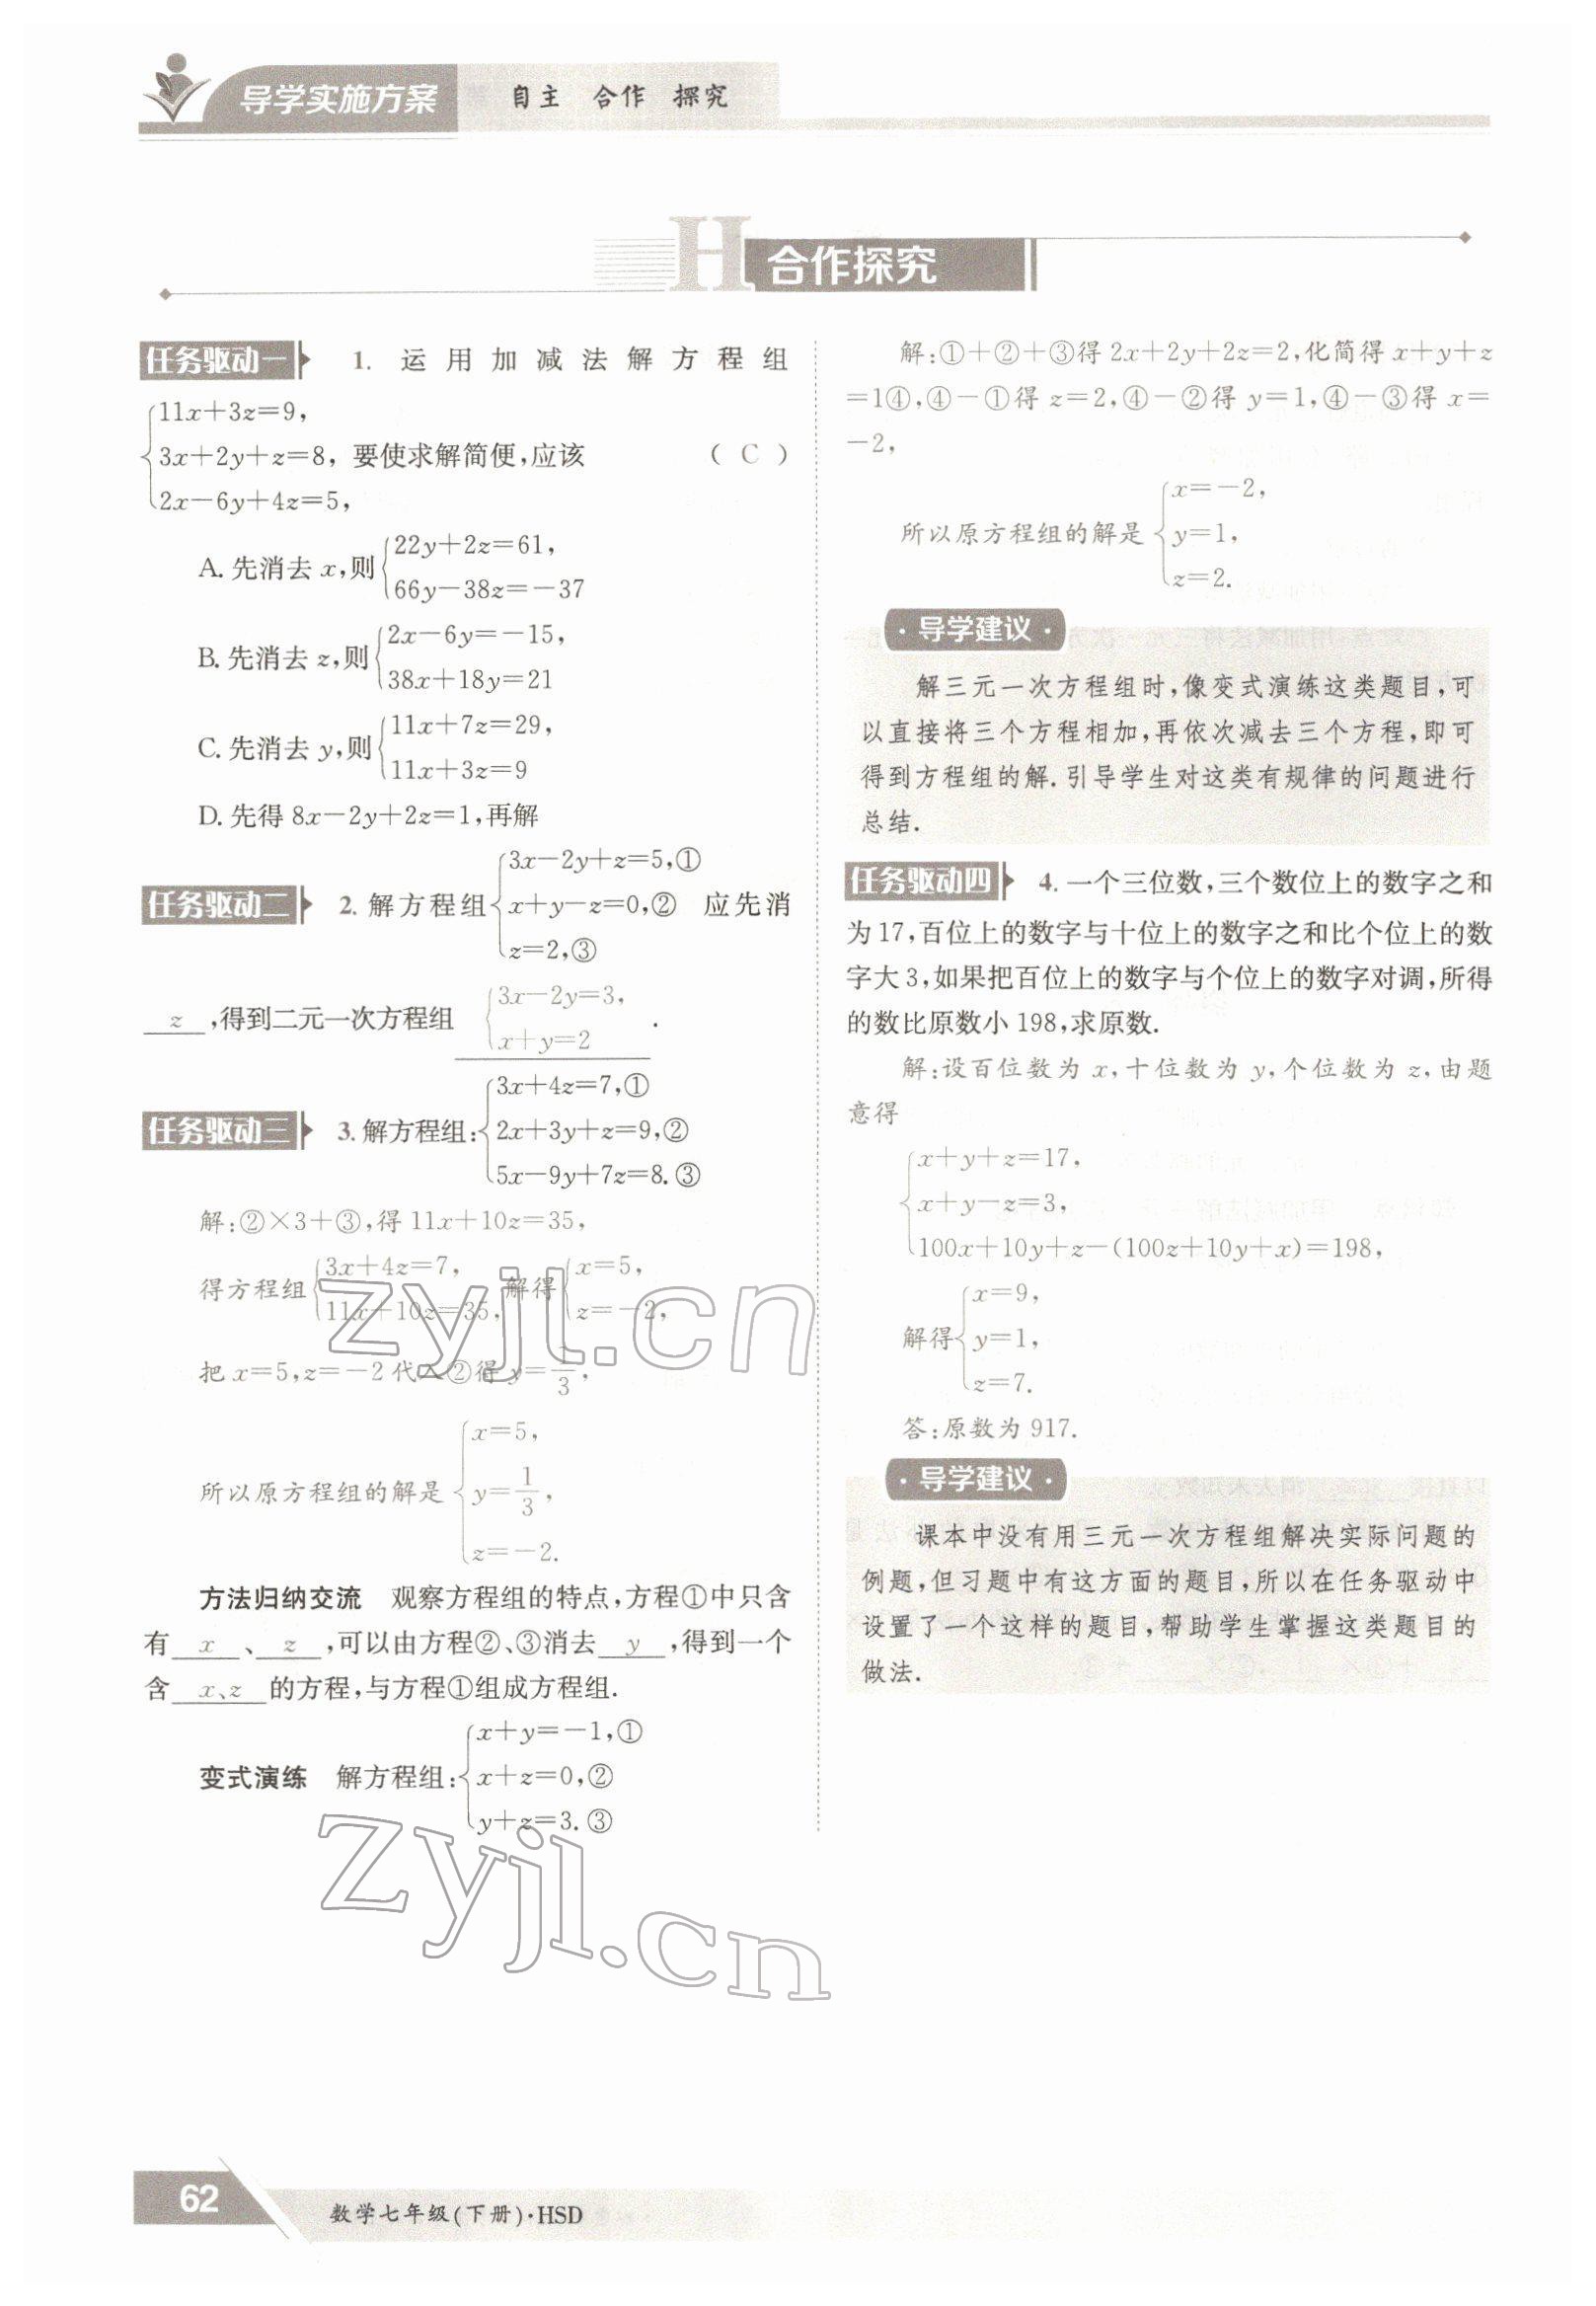 导学实施方案 自主 合作 探究
H 合作探究
任务驱动一 1. 运用加减法解方程组
11x+3z=9,
3x+2y+z=8, 要使求解简便,应该 ( C )
2x-6y+4z=5,
A. 先消去 x,则 { 22y+2z=61,
66y-38z=-37
B. 先消去 z,则 { 2x-6y=-15,
38x+18y=21
C. 先消去 y,则 { 11x+7z=29,
11x+3z=9
D. 先得 8x-2y+2z=1,再解
3x-2y+z=5,①
任务驱动二 2. 解方程组 { x+y-z=0,② 应先消
z=2,③
z ,得到二元一次方程组 { 3x-2y=3,
x+y=2 .
3x+4z=7,①
任务驱动三 3. 解方程组: { 2x+3y+z=9,②
5x-9y+7z=8.③
解:②×3+③,得 11x+10z=35,
得方程组 { 3x+4z=7, 解得 { x=5,
11x+10z=35, z=-2,
把 x=5,z=-2 代入②得 y=1/3,
x=5,
所以原方程组的解是 { y=1/3,
z=-2.
方法归纳交流 观察方程组的特点,方程①中只含
有 x 、 z ,可以由方程②、③消去 y ,得到一个
含 x、z 的方程,与方程①组成方程组.
x+y=-1,①
变式演练 解方程组: { x+z=0,②
y+z=3.③
解:①+②+③得 2x+2y+2z=2,化简得 x+y+z
=1④,④-①得 z=2,④-②得 y=1,④-③得 x=
-2,
x=-2,
所以原方程组的解是 { y=1,
z=2.
·导学建议·
解三元一次方程组时,像变式演练这类题目,可
以直接将三个方程相加,再依次减去三个方程,即可
得到方程组的解.引导学生对这类有规律的问题进行
总结.
任务驱动四 4. 一个三位数,三个数位上的数字之和
为 17,百位上的数字与十位上的数字之和比个位上的数
字大 3,如果把百位上的数字与个位上的数字对调,所得
的数比原数小 198,求原数.
解:设百位数为 x,十位数为 y,个位数为 z,由题
意得
x+y+z=17,
x+y-z=3,
100x+10y+z-(100z+10y+x)=198,
x=9,
解得 { y=1,
z=7.
答:原数为 917.
·导学建议·
课本中没有用三元一次方程组解决实际问题的
例题,但习题中有这方面的题目,所以在任务驱动中
设置了一个这样的题目,帮助学生掌握这类题目的
做法.
zyjl.cn
zyjl.cn
62 数学七年级(下册)·HSD